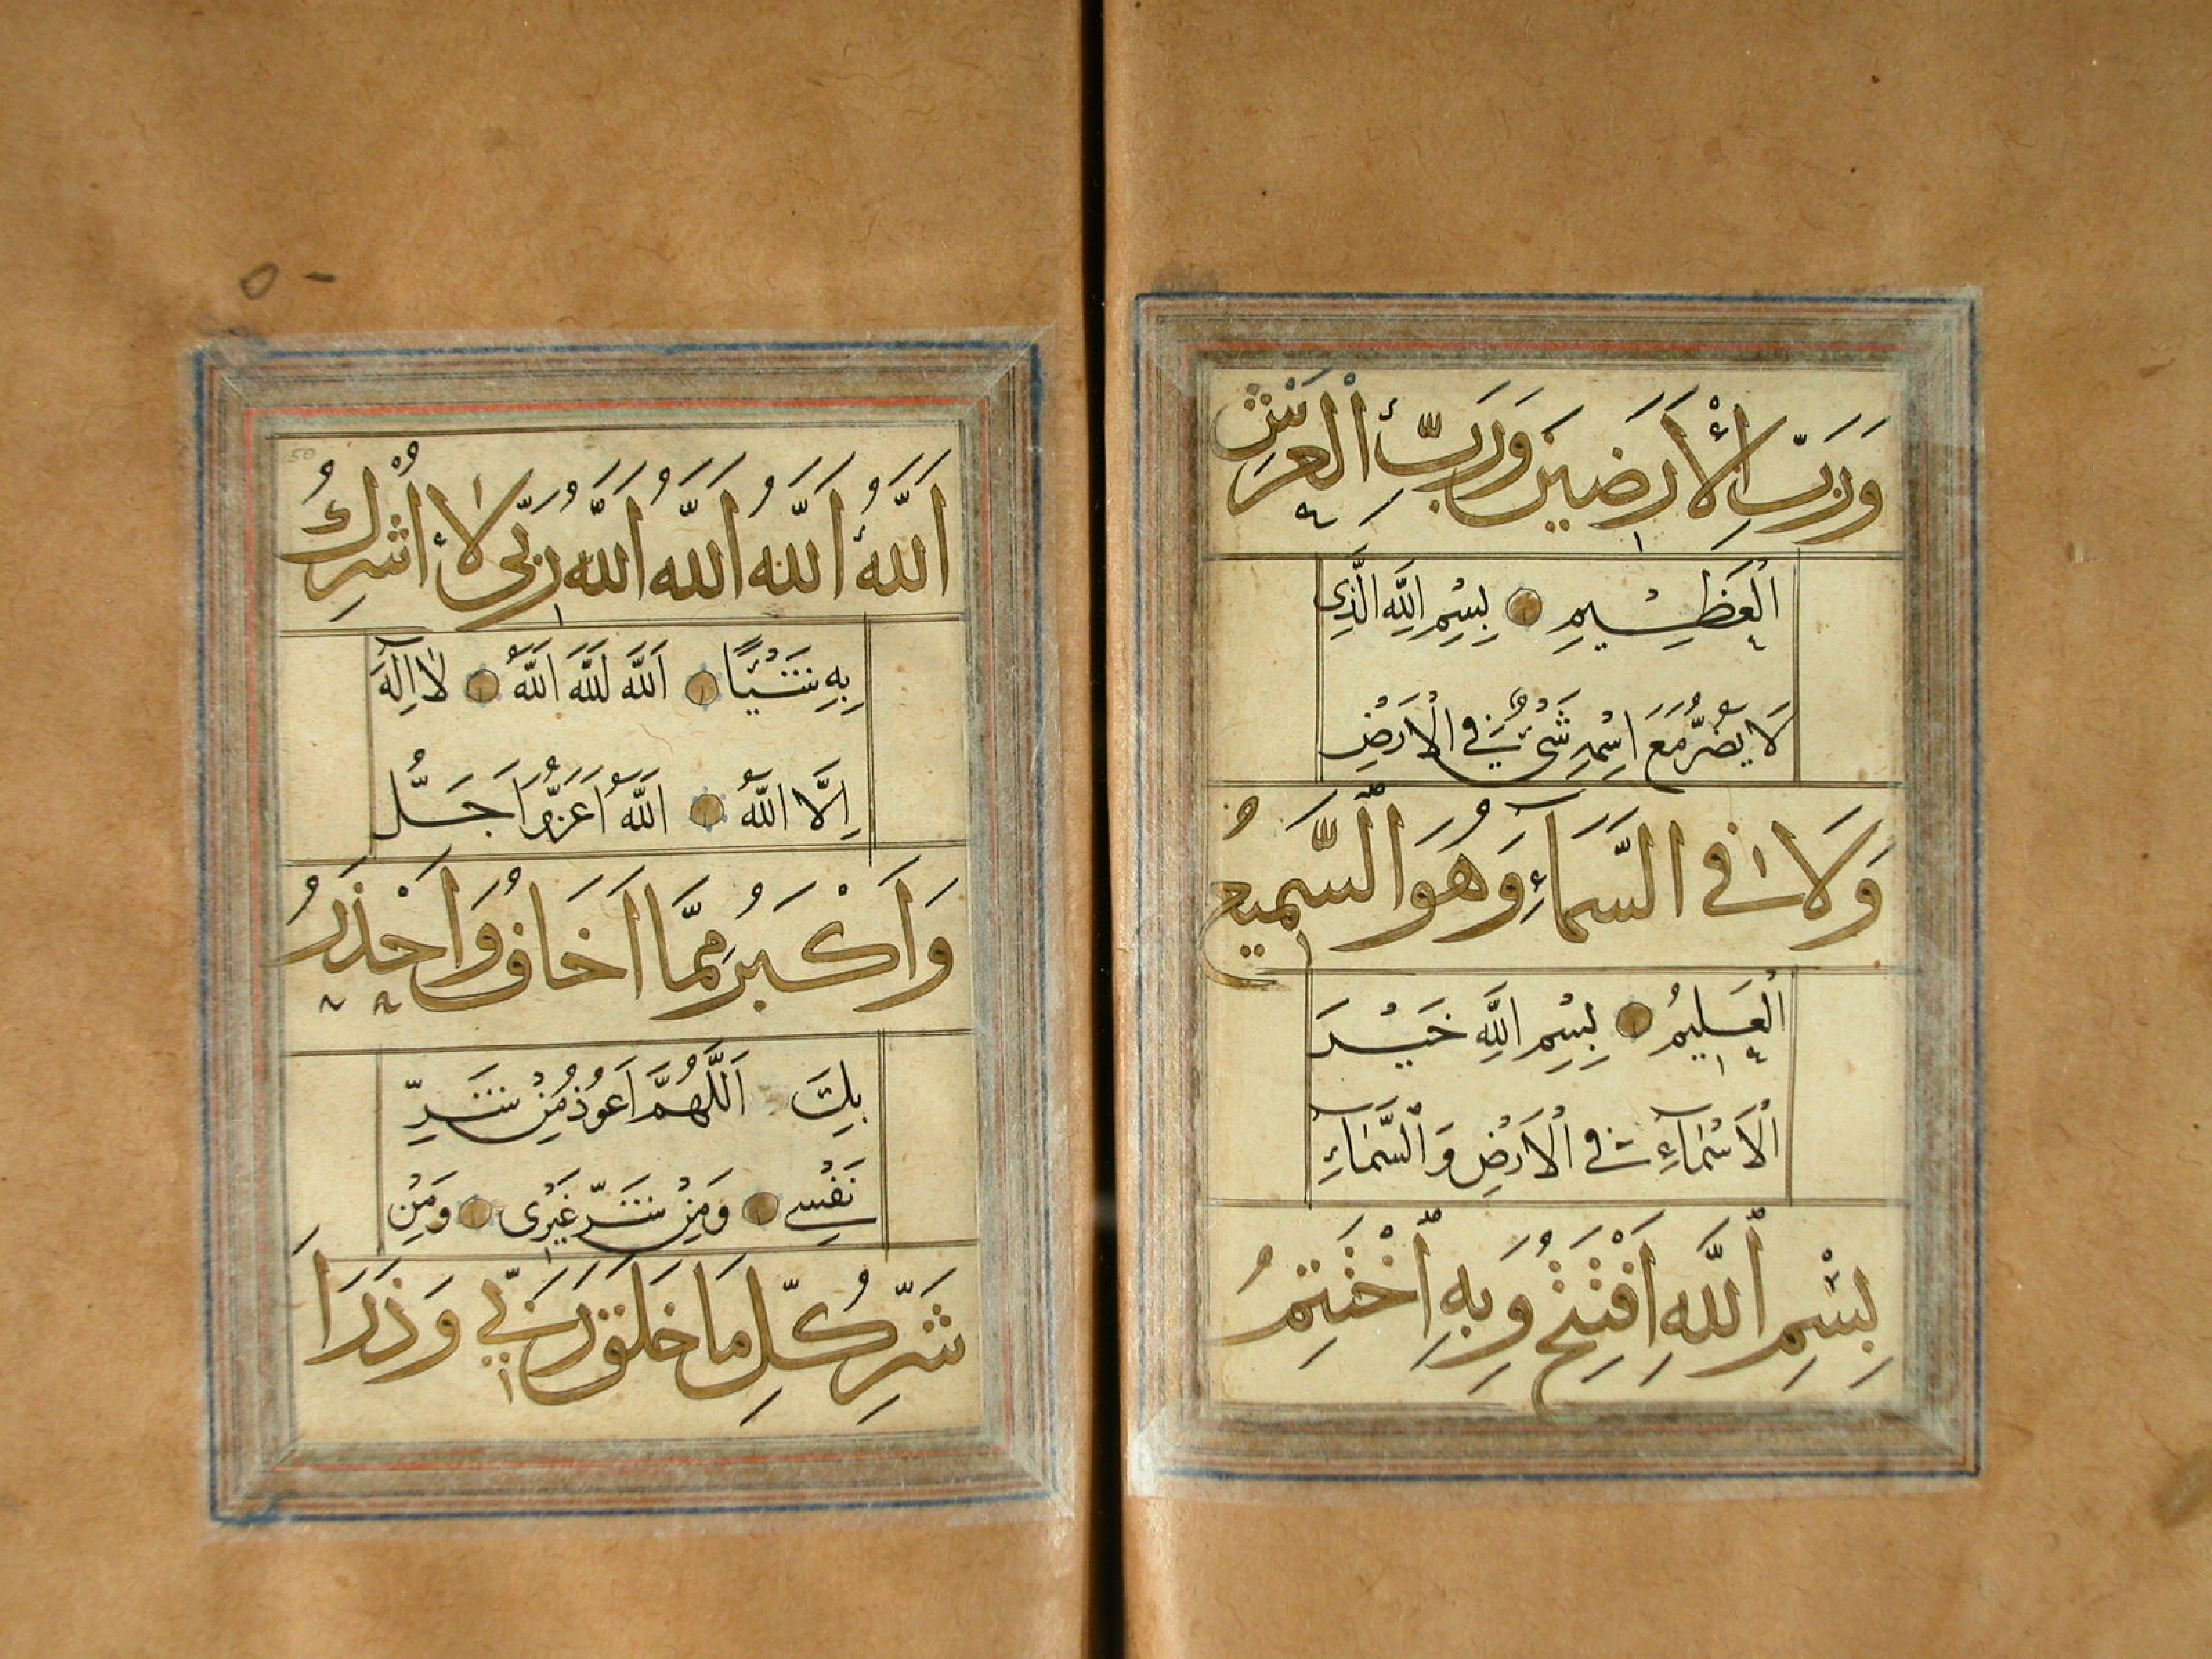 وَرَبِّ الْأَرَضِينَ وَرَبِّ الْعَرْشِ
الْعَظِيمِ بِسْمِ اللَّهِ الَّذِي
لَا يَضُرُّ مَعَ اسْمِهِ شَيْءٌ فِي الْاَرْضِ
وَلَا فِي السَّمَاءِ وَهُوَ السَّمِيعُ
الْعَلِيمُ بِسْمِ اللَّهِ خَيْرَ
الْاَسْمَآءِ فِي الْاَرْضِ وَالسَّمَآءِ
بِسْمِ اللَّهِ اَفْتَتِحُ وَبِهِ اَخْتَتِمُ
اَللَّهُ اَللَّهُ اَللَّهُ اَللَّهُ رَبِّي لَا أُشْرِكُ
بِهِ شَيْئًا اَللَّهُ اَللَّهُ اَللَّهُ لَا اِلَهَ
اِلَّا اللَّهُ اَللَّهُ اَعَزُّ وَاَجَلُّ
وَاَكْبَرُ مِمَّا اَخَافُ وَاَحْذَرُ
بِكَ اَللَّهُمَّ اَعُوذُ مِنْ شَرِّ
نَفْسِي وَمِنْ شَرِّ غَيْرِي وَمِنْ
شَرِّ كُلِّ مَا خَلَقَ رَبِّي وَذَرَاَ
50